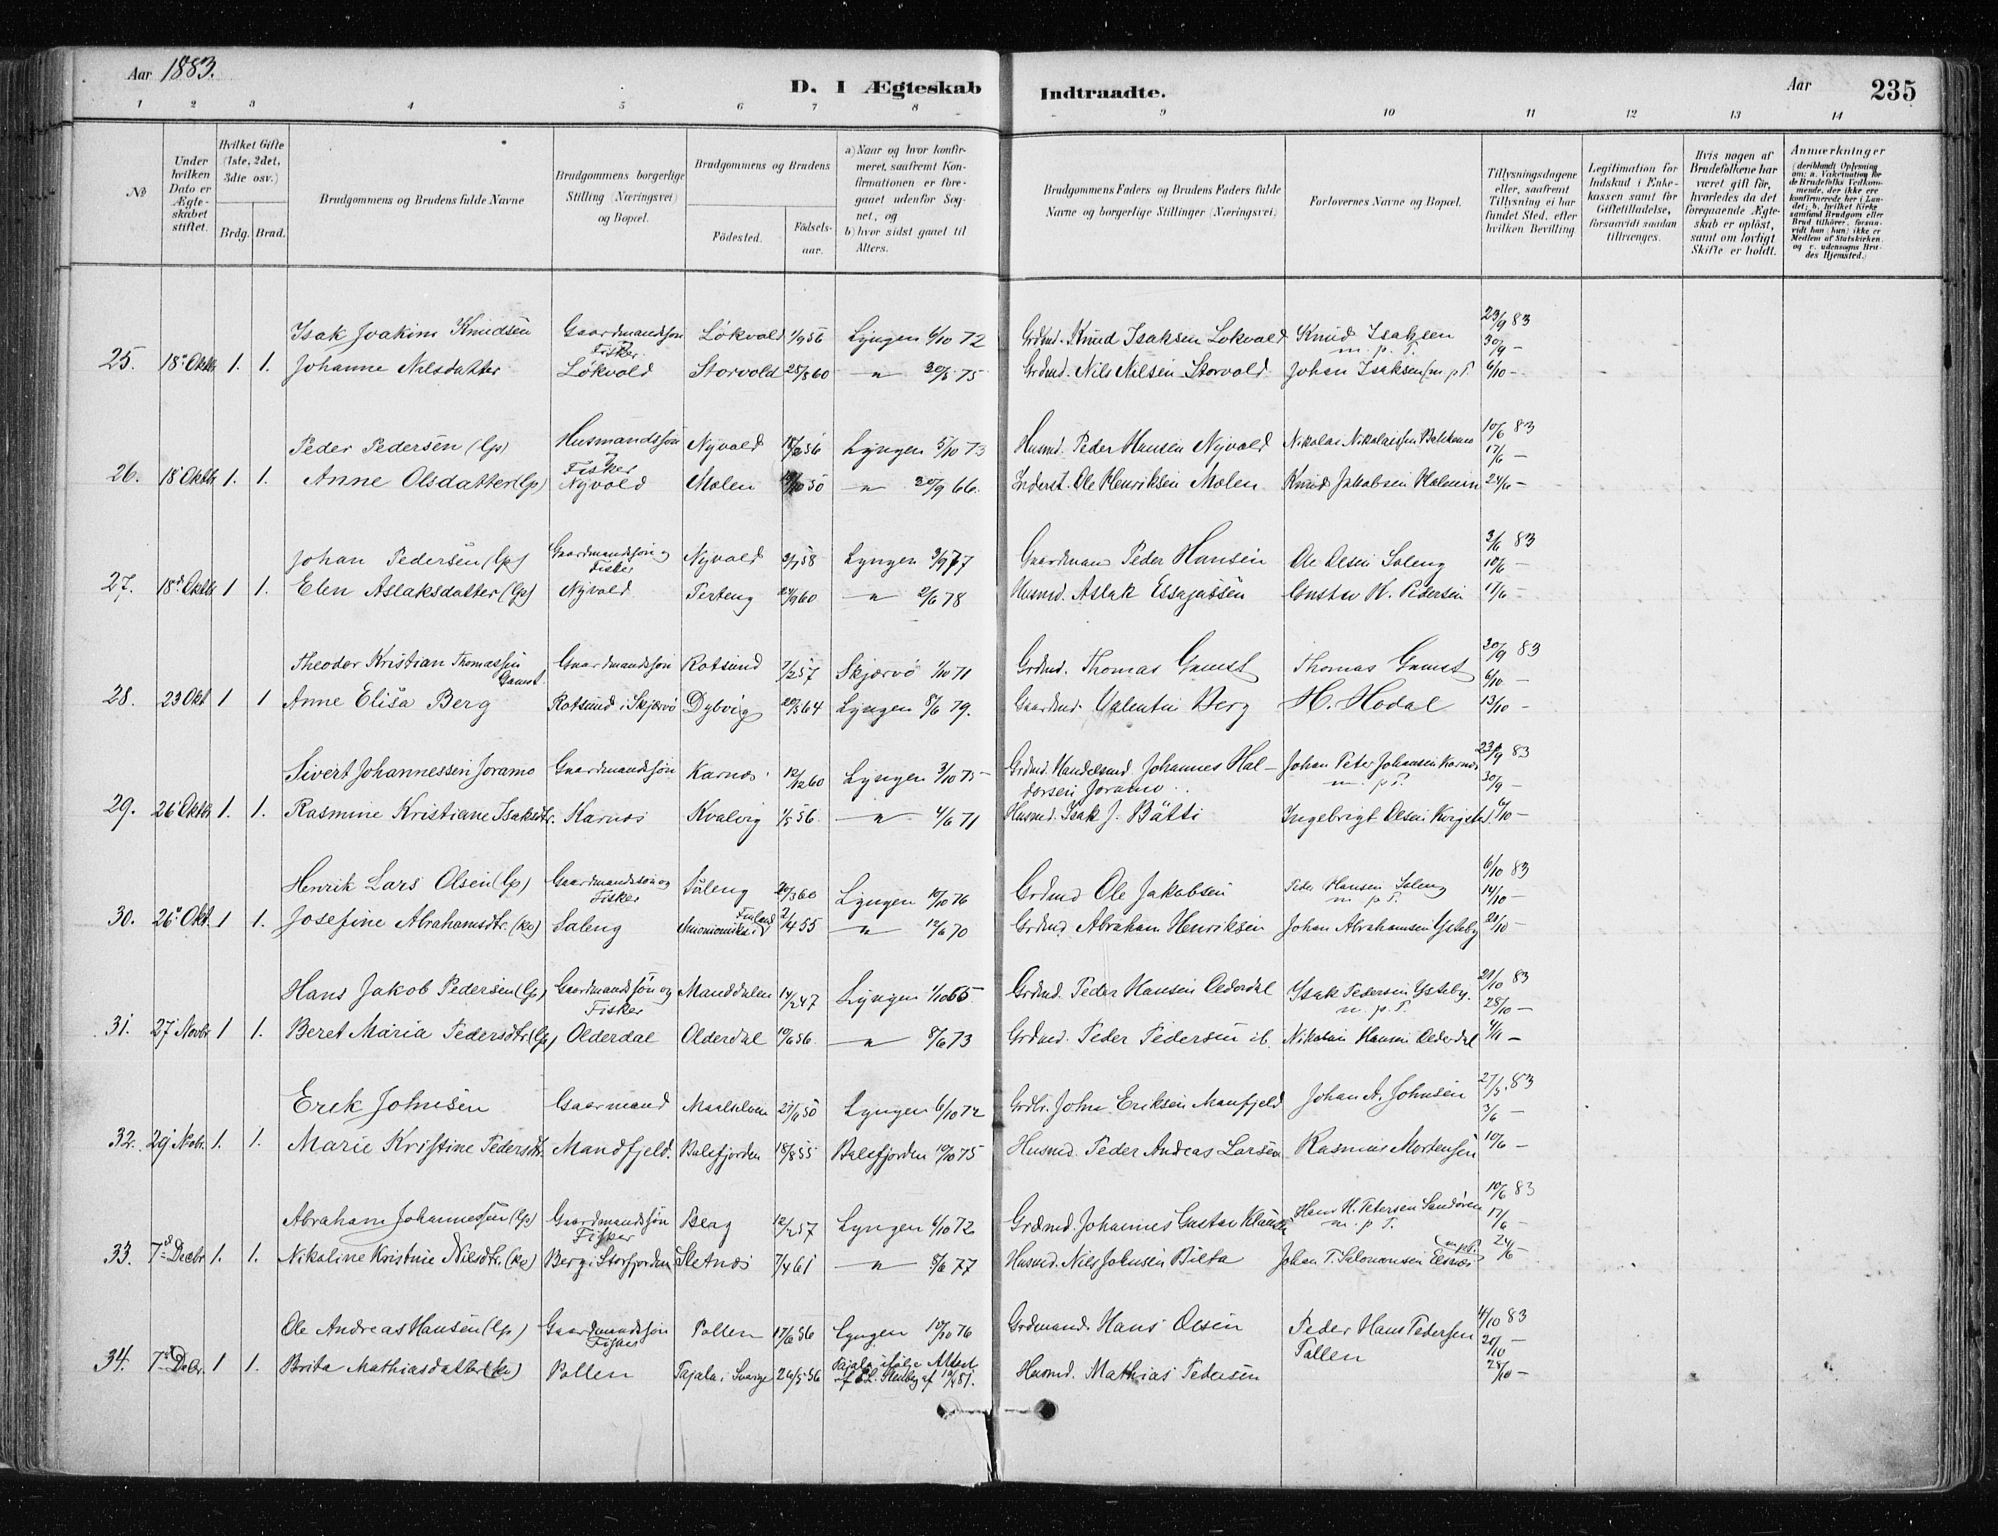 Aar 1883.
D. I Ægteskab Indtraadte.
Aar 235
1 2 3 4 5 6 7 8 9 10 11 12 13 14
№
Under hvilken Dato er Ægteskabet stiftet.
Hvilket Gifte (1ste, 2det, 3die osv.)
Brdg. Brud.
Brudgommens og Brudens fulde Navne
Brudgommens borgerlige Stilling (Næringsvei) og Bopæl.
Brudgommens og Brudens
Fødested. Fødselsaar.
a) Naar og hvor konfirmeret, saafremt Konfirmationen er foregaaet udenfor Sognet, og
b) hvor sidst gaaet til Alters.
Brudgommens Faders og Brudens Faders fulde Navne og borgerlige Stillinger (Næringsvei)
Forlovernes Navne og Bopæl.
Tillysningsdagene eller, saafremt Tillysning ei har fundet Sted, efter hvilken Bevilling
Legitimation for Indskud i Enkekassen samt for Giftetilladelse, forsaavidt saadan tiltrænges.
Hvis nogen af Brudefolkene har været gift før, hvorledes da det foregaaende Ægteskab er opløst, samt om lovligt Skifte er holdt.
Anmærkninger
(deriblandt Oplysning om: a. Vakcination for de Brudefolks Vedkommende, der ikke ere konfirmerede her i Landet; b. hvilket Kirkesamfund Brudgom eller Brud tilhører, forsaavidt han (hun) ikke er Medlem af Statskirken, og c. udensogns Brudes Hjemsted.)
Isak Joakim Knudsen Gaardmandssøn Løkvold 1/9 56 Lyngen 6/10 72 Grdmd. Knud Isaksen Lokvold Knud Isaksen 23/9 83
Fisker m. p. P. 30/9 –
25. 18 Oktbr 1. 1. Johanne Nilsdatter Løkvold Storvold 25/8 60 – " – 20/6 75 Grdmd. Nils Nilsen Storvold Johan Isaksen (m. p. P. 6/10 –
Peder Pedersen (Lp) Husmandssøn Nyvold 18/6 56 Lyngen 5/10 73 Husmd. Peder Hansen Nyvold Nikolai Nikolaissen 10/6 83
Fisker 17/6 –
26. 18 Oktbr 1. 1. Anne Olsdatter (Lp) Nyvold Molen 50 – " – 30/9 66. Inderst. Ole Henriksen Molen Knud Jakobsen 24/6 –
Johan Pedersen (Lp) Gaardmandssøn og Nyvold 58 Lyngen 3/9 77 Gaardman Peder Hansen Ole Olsen Soleng 3/6 83
Fisker 10/6 –
27. 18 Oktbr 1 1. Elen Aslaksdatter (Lp) Nyvold Perteng 24/9 60 – " – 2/6 78 Husmd. Aslak Gustav K. Pedersen 17/6 –
Theodor Kristian Thomassen Gaardmandssøn Rotsund 7/2 57 Skjærvö 1/10 71 Grdmd. Thomas Gamst Thomas Gamst 30/9 83
Gamst. 6/10 –
28. 23 Okt 1 1 Anne Elisa Berg Rotsund i Skjærvö Dybvig 20/3 64 Lyngen 8/6 79. Gaardmd. Valentin Berg H. Hodal 13/10 –
Sivert Johannessen Joramo Gaardmandssøn Karnes 12/12 60 Lyngen 3/10 75 – Grdmd. Handelsmd Johannes Hal- Johan Peter Johansen Karnes 23/9 83
dorsen Joramo. m. p. P. 30/9 –
29. 26 Oktbr 1. 1. Rasmine Kristiane Isaksdtr. Karnes Kvalvig 1/5 56. – " – 4/6 71 Husmd. Isak J. Bätti Ingebrigt Olsen 6/10 –
Henrik Lars Olsen (Lp) Gaardmandssøn og Soleng 20/3 60 Lyngen 10/10 76 Grdmd Ole Jakobsen Peder Hansen Soleng 6/10 83
Fisker m. p. P. 14/10 –
30. 26 Okt. 1 1. Josefine Abrahamsdtr. (Kv) Soleng Finland 2/4 55 – " – 12/6 70 Grdmd Abraham Henriksen Johan Abrahamsen Ysteby 21/10 –
Hans Jakob Pedersen (Lp) Gaardmandssøn og Manddalen 14/2 47 Lyngen 1/10 65 Grdmd. Peder Hansen Olderdal Isak Pedersen Ysteby. 21/10 83
Fisker m. p. P. 28/10 –
31. 27 Novbr 1 1. Beret Maria Pedersdtr (Lp) Olderdal Olderdal 10/6 56. – " – 8/6 73 Grdmd. Peder Pedersen ib. Nikolai Hansen Olderdal 4/11 –
Erik Johnsen Gaarmand 50 Lyngen 6/10 72 Grdbr. John Eriksen Manfjeld Johan A. Johnsen 27/5. 83
3/6 –
32. 29 Novbr. 1. 1. Marie Kristine Pedersdtr. Mandfjeld. Balsfjorden 18/8 55 Balsfjorden 10/10 75 Husmd. Peder Andreas Larsen Rasmus Mortensen 10/6 –
Abraham Johannessen (Lp) Gaardmandssøn Berg 12/2 57 Lyngen 6/10 72 Grdmd. Johannes Gustav Hans H. Petersen Sandören 10/6 83
Fisker m. p. P. 17/6 –
33. 7 Decbr 1. 1. Nikoline Kristine Nilsdtr. (Kv) Berg i Storfjorden Sletnes 7/4 61 – " – 3/6 77 Husmd. Nils Johnsen Bilta Johan P. Salomonsen Elsnes m. p. P. 24/6 –
Ole Andreas Hansen (Lp) Gaardmandssøn Pollen 17/6 56 Lyngen 10/10 76 Grdmand. Hans Olsen Peder Hans Pedersen 14/10 83
Fisker Pollen 21/10 –
34. 7 Decbr. 1 1. Brita Mathiasdatter (Kv) Pollen Pajala i Sverige 26/5 56 Pajala ifølge Attest af 10/4 81. Husmd. Mathias Pedersen 28/10 –